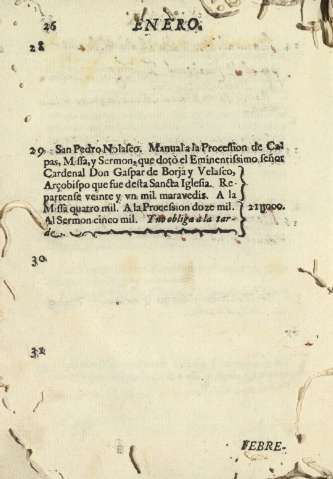 26 ENERO.
28
29 San Pedro Nolasco. Manual a la Procession de Ca-
pas, Missa, y Sermon, que dotò el Eminentissimo señor
Cardenal Don Gaspar de Borja y Velasco,
Arçobispo que fue desta Sancta Iglesia. Re-
partense veinte y vn mil maravedis. A la
Missa quatro mil. A la Procession doze mil. 21U000.
Al Sermon cinco mil. Y no obliga à la tar-
de.
30
31
FEBRE-